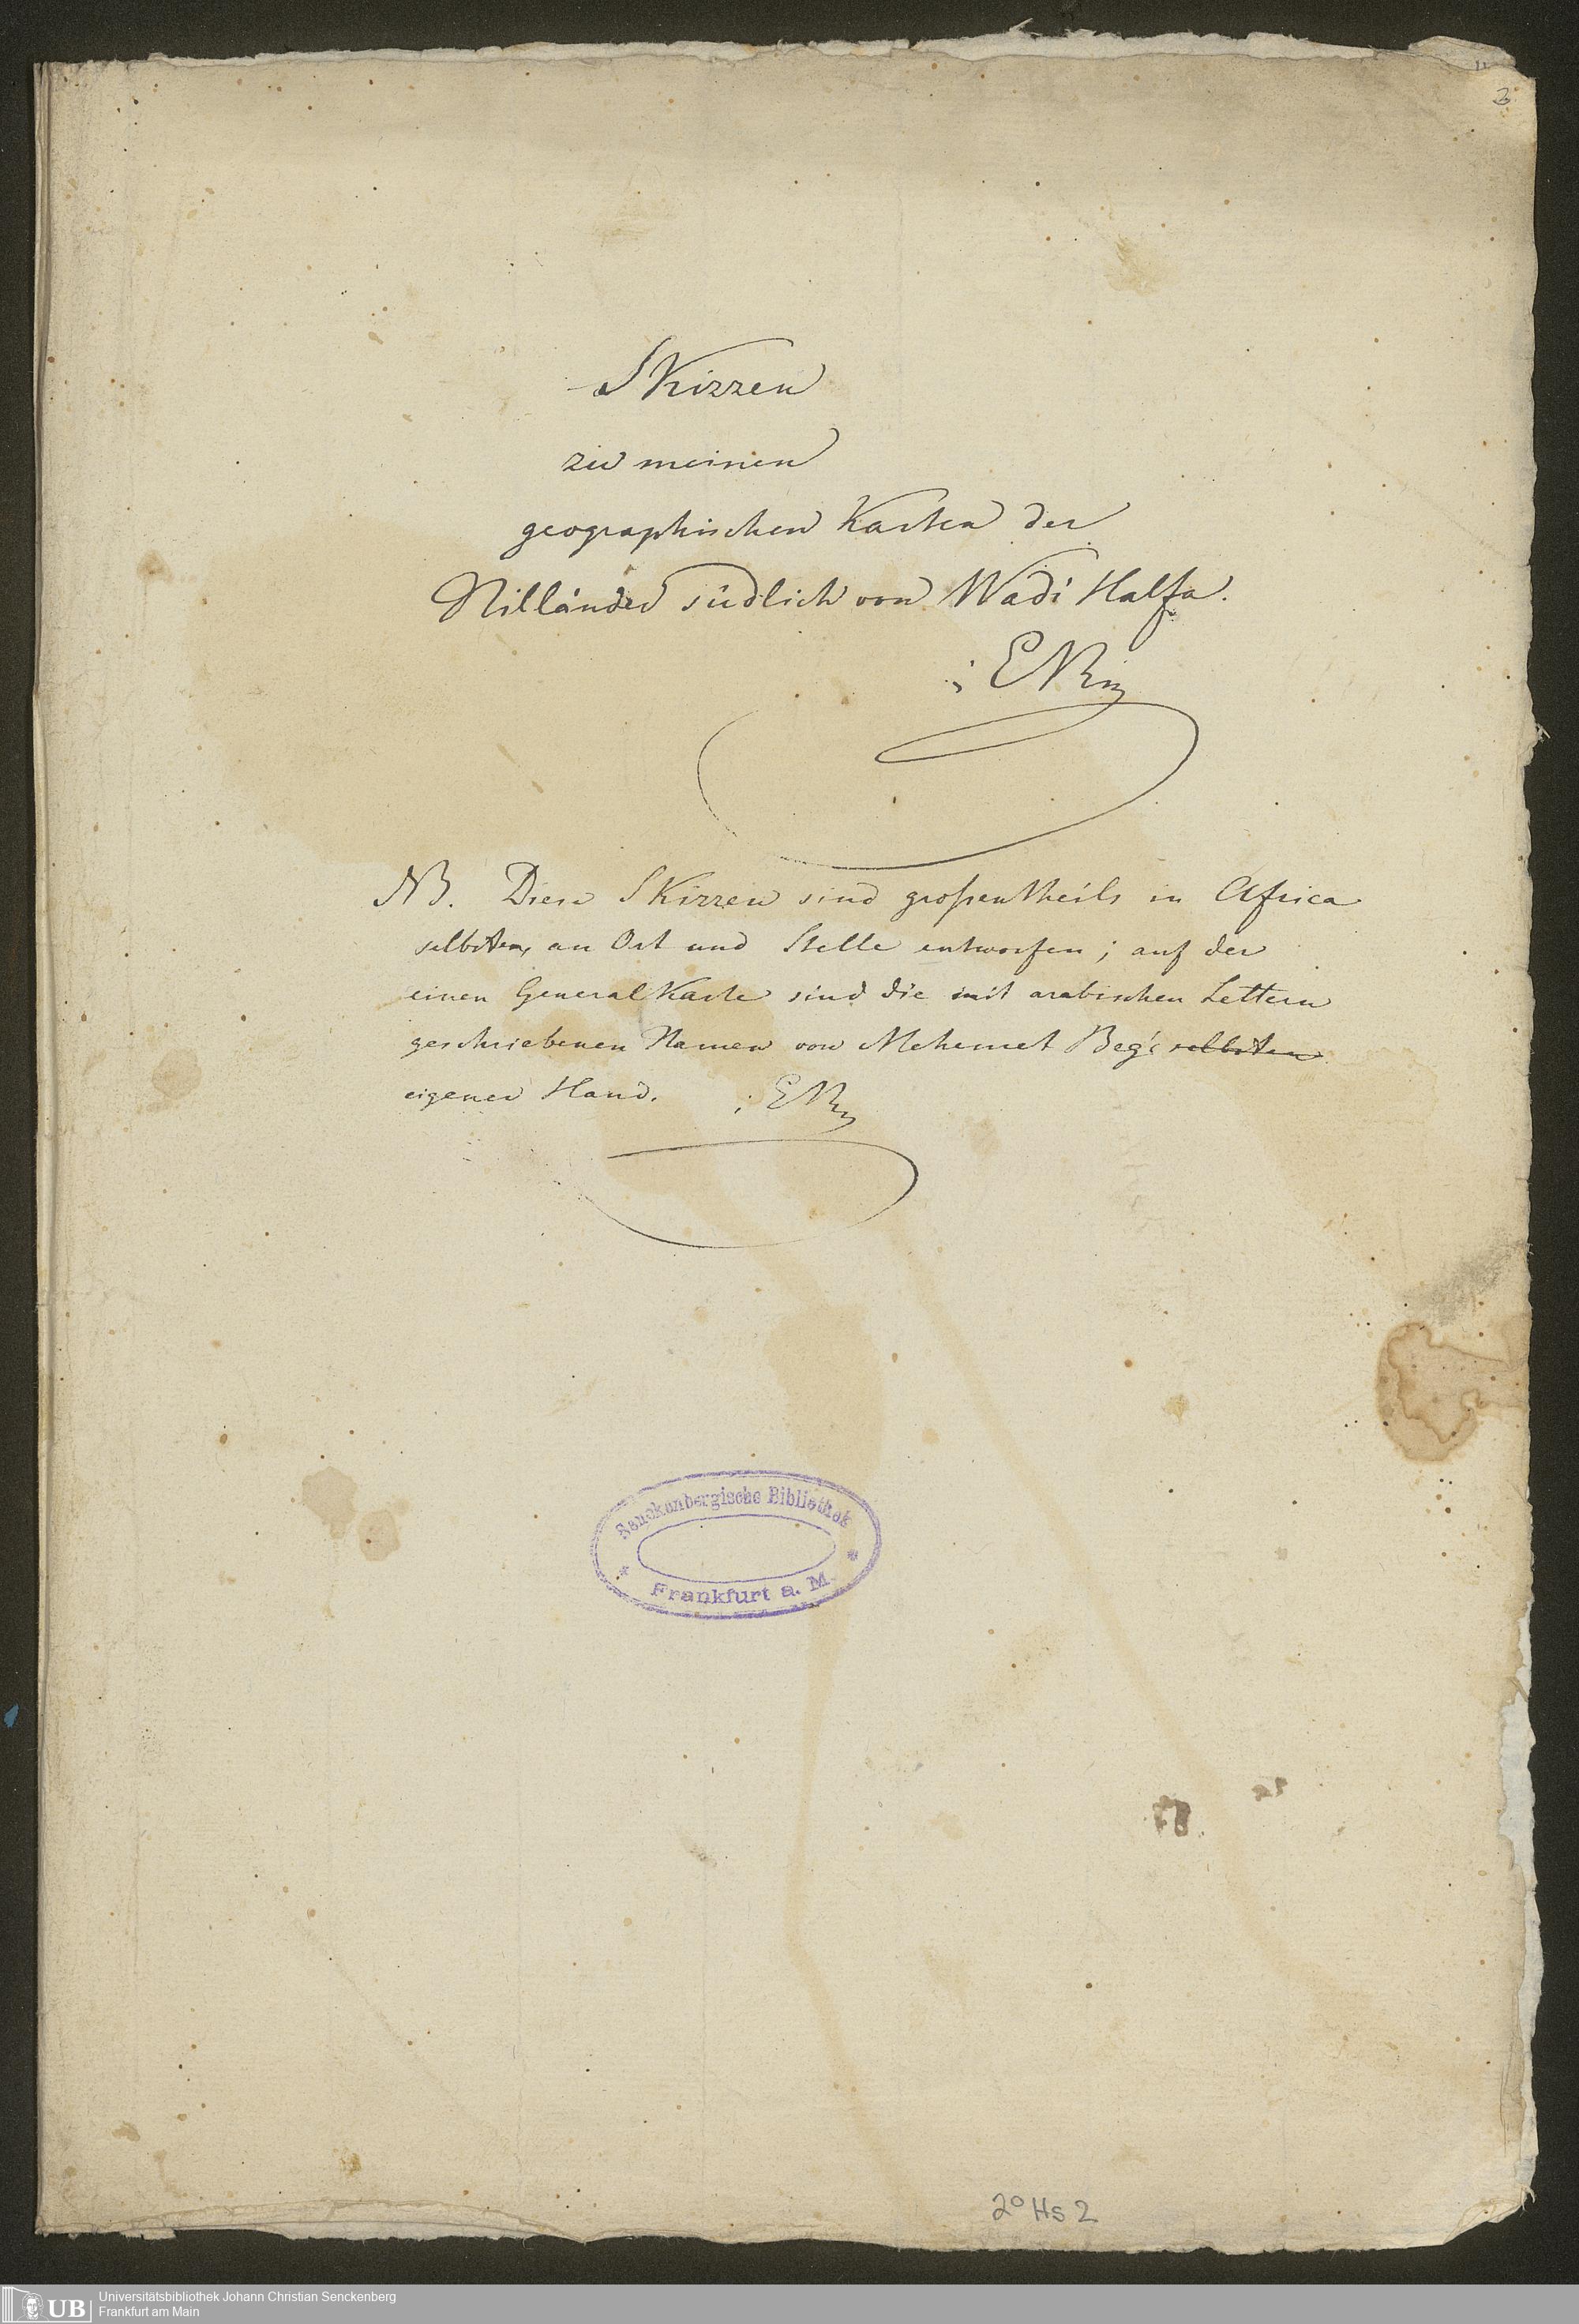 2
Skizzen
zu meinen
geographischen Karten der
Nilländer südlich von Wadi Halfa.
NB. Diese Skizzen sind großentheils in Africa
selbsten, an Ort und Stelle entworfen; auf der
einen General Karte sind die mit arabischen Lettern
geschriebenen Namen von Mehemet Beg's selbsten
eigener Hand.
Senckenbergische Bibliothek
* Frankfurt a. M. *
2° Hs 2
UB
Universitätsbibliothek Johann Christian Senckenberg
Frankfurt am Main